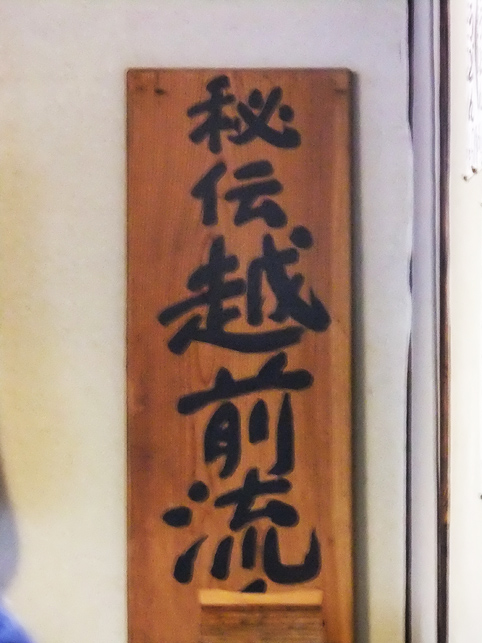 秘伝越前流